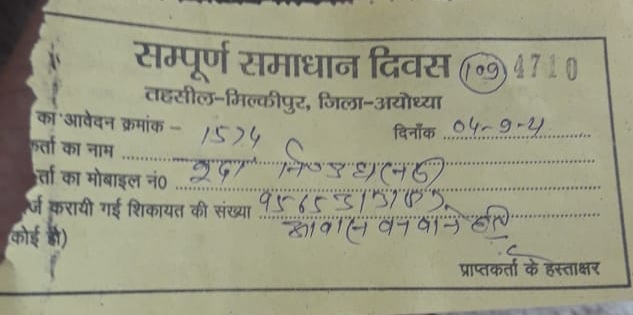 सम्पूर्ण समाधान दिवस 109 4710
तहसील-मिल्कीपुर, जिला-अयोध्या
का आवेदन क्रमांक - 1574 दिनाँक 04-9-21
र्ता का नाम
र्ता का मोबाइल नं0
र्ज करायी गई शिकायत की संख्या
कोई हो) आवास बनवाने हेतु
प्राप्तकर्ता के हस्ताक्षर